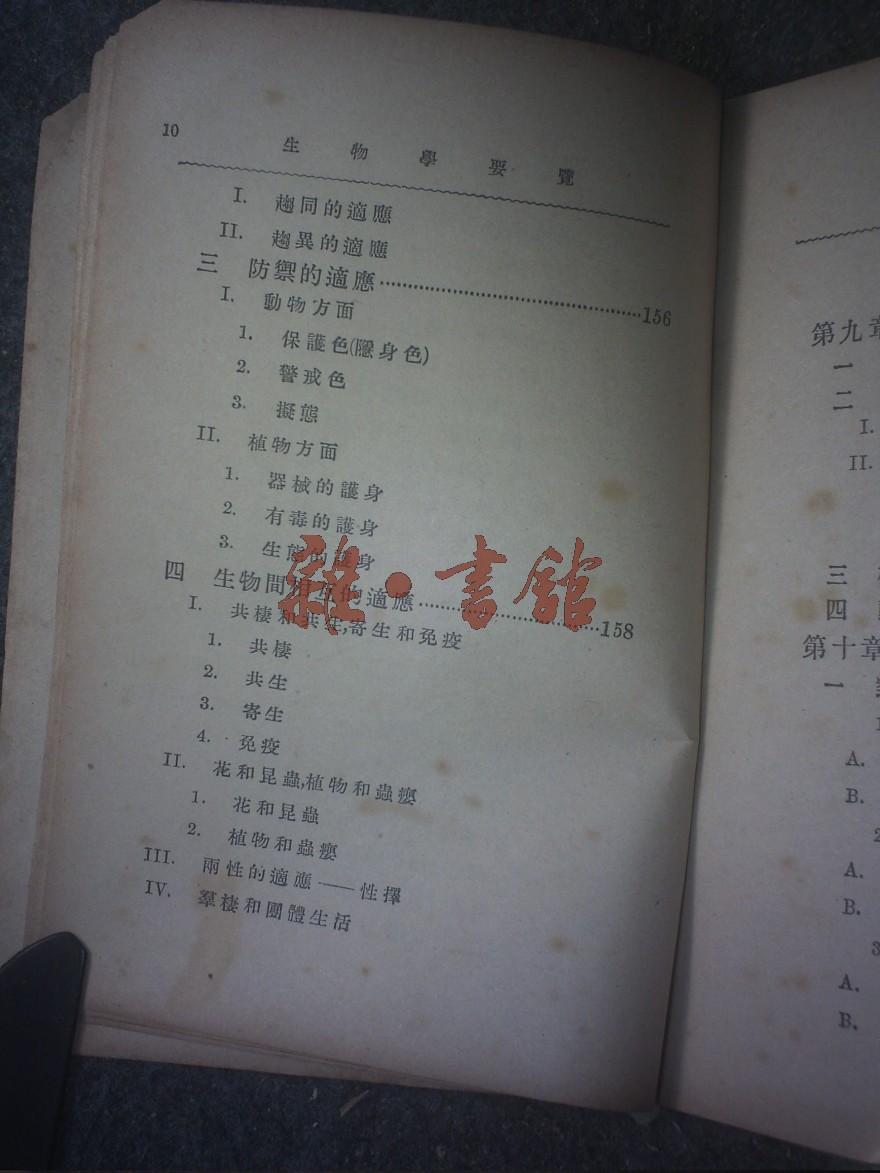 10
生物學要覽
I. 趨同的適應
II. 趨異的適應
三 防禦的適應……156
I. 動物方面
1. 保護色(隱身色)
2. 警戒色
3. 擬態
II. 植物方面
1. 器械的護身
2. 有毒的護身
3. 生態的護身
四 生物間相互的適應……158
I. 共棲和共生,寄生和免疫
1. 共棲
2. 共生
3. 寄生
4. 免疫
II. 花和昆蟲,植物和蟲癭
1. 花和昆蟲
2. 植物和蟲癭
III. 兩性的適應——性擇
IV. 羣棲和團體生活
雜·書館
第九章
一
二
I.
II.
三
四
第十章
一
A.
B.
2
A.
B.
3
A.
B.